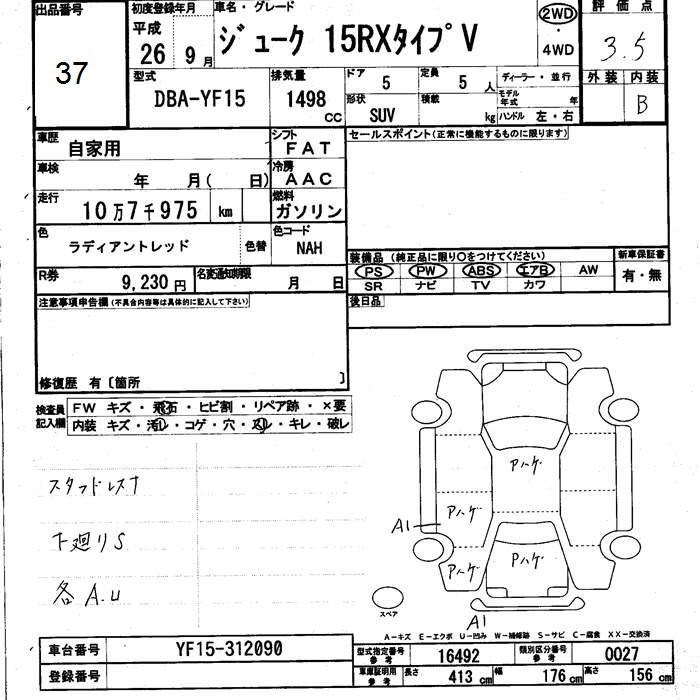 出品番号 37
初度登録年月 平成 26年 9月
車名・グレード ジューク 15RXタイプV
2WD・4WD
評価点 3.5
外装 内装 B
型式 DBA-YF15
排気量 1498 cc
ドア 5 定員 5人
形状 SUV 積載 kg
ディーラー・並行
モデル年式 年
ハンドル 左・右
車歴 自家用
シフト FAT
セールスポイント(正常に機能するものに限ります)
車検 年 月( 日)
冷房 AAC
走行 10万7千975 km
燃料 ガソリン
色 ラディアントレッド 色替
色コード NAH
装備品(純正品に限り○をつけてください)
新車保証書 有・無
PS PW ABS エアB AW
SR ナビ TV カワ
R券 9,230円
名変通知期限 月 日
後日品
注意事項申告欄(不具合内容等は具体的に記入して下さい)
修復歴 有〔箇所 〕
検査員記入欄
FW キズ・飛石・ヒビ割・リペア跡・×要
内装 キズ・汚レ・コゲ・穴・スレ・キレ・破レ
スタッドレス
下廻りS
各A.U
Pハゲ
Pハゲ
A1
Pハゲ
Pハゲ
A1
スペア
A-キズ E-エクボ U-凹み W-補修跡 S-サビ C-腐食 XX-交換済
車台番号 YF15-312090
登録番号
型式指定番号 参考 16492
類別区分番号 参考 0027
車庫証明用 参考 長さ 413cm 幅 176cm 高さ 156cm